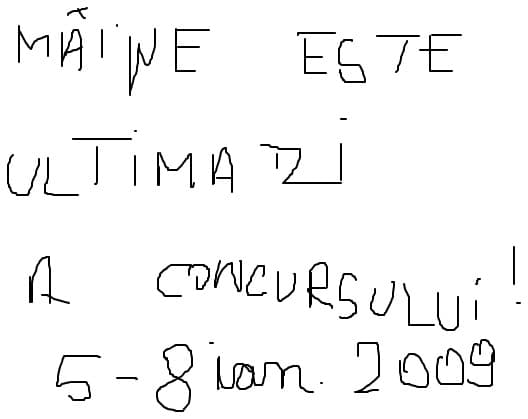 MÂINE ESTE
ULTIMA ZI
A CONCURSULUI!
5-8 ian. 2009